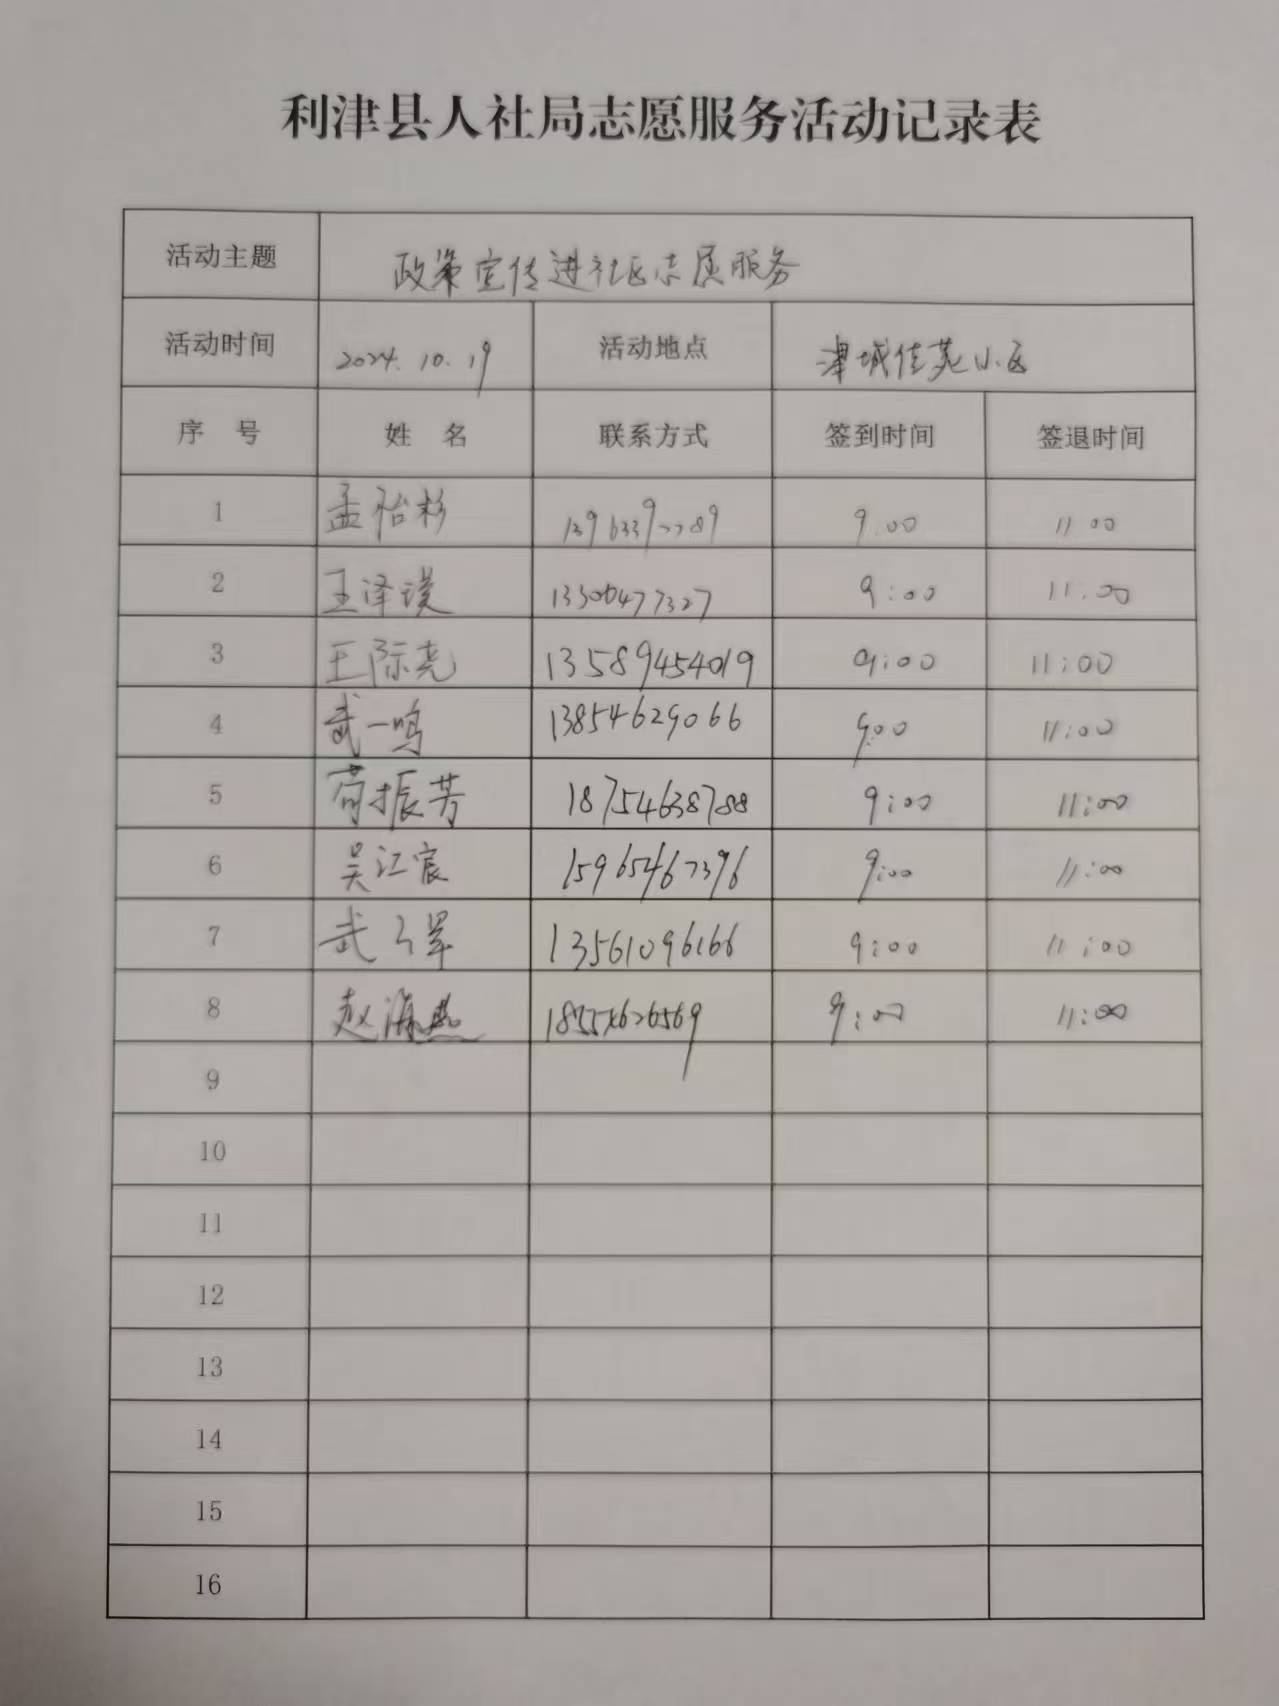 利津县人社局志愿服务活动记录表
活动主题 政策宣传进社区志愿服务
活动时间 2024.10.19 活动地点 津城佳苑小区
序 号 姓 名 联系方式 签到时间 签退时间
1 孟怡杉 13963397789 9:00 11:00
2 王泽璞 13306477327 9:00 11:00
3 王际尧 13589454019 9:00 11:00
4 武一鸣 13854629066 9:00 11:00
5 苟振芳 18754638788 9:00 11:00
6 吴江宸 15965467396 9:00 11:00
7 武 13561096166 9:00 11:00
8 赵海燕 9:00 11:00
9
10
11
12
13
14
15
16